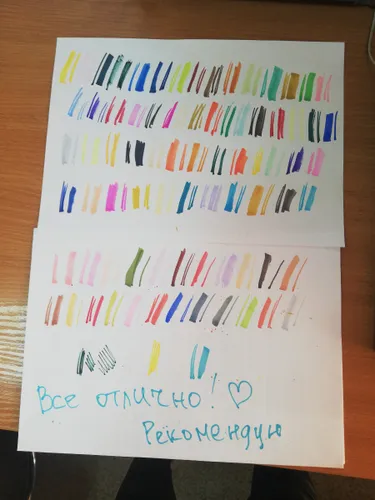 Все отлично! ♡
Рекомендую